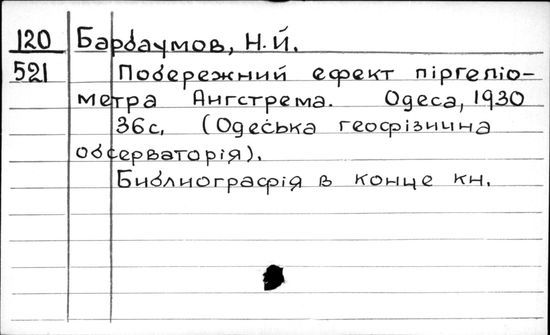 120 Барбаумов, Н.Й.
521 Побережний ефект піргеліо-
метра Ангстрема. Одеса, 1930
36с. (Одеська геофізична
обсерваторія).
Библиографія в конце кн.